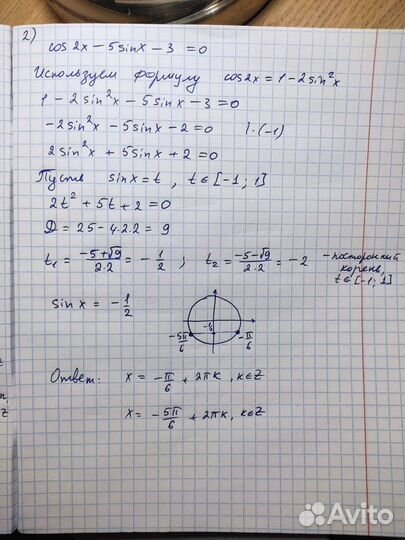 2)
cos2x - 5sinx - 3 = 0
Используем формулу cos2x = 1 - 2sin²x
1 - 2sin²x - 5sinx - 3 = 0
-2sin²x - 5sinx - 2 = 0 | · (-1)
2sin²x + 5sinx + 2 = 0
Пусть sinx = t, t ∈ [-1; 1]
2t² + 5t + 2 = 0
D = 25 - 4·2·2 = 9
t₁ = (-5+√9)/(2·2) = -1/2 ; t₂ = (-5-√9)/(2·2) = -2 - посторонний корень, t ∈ [-1; 1]
sinx = -1/2
-1/2
-5π/6 -π/6
Ответ: x = -π/6 + 2πk, k∈Z
x = -5π/6 + 2πk, k∈Z
Avito